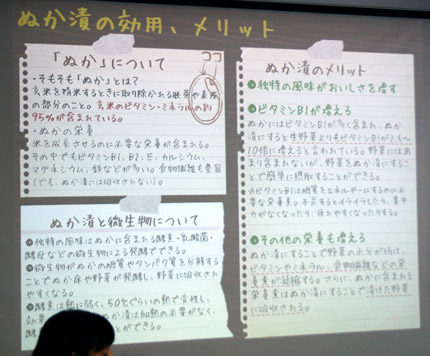 ぬか漬の効用、メリット
「ぬか」について
ココ
・そもそも「ぬか」とは?
玄米を精米するときに取り除かれる胚芽や表皮
の部分のこと。玄米のビタミン・ミネラルの約
95%が含まれている。
・ぬかの栄養
米を成長させるのに必要な栄養が含まれる。
その中でもビタミンB1、B2、E、カルシウム、
マグネシウム、鉄などが多い。食物繊維も豊富
(でも、ぬか漬には吸収されない)。
ぬか漬と微生物について
●独特の風味はぬかに含まれる酵素・乳酸菌・
酵母などの微生物による発酵でできる。
●微生物がぬかの糖質やタンパク質を分解する
ことでぬか床や野菜が発酵し、野菜に吸収され
やすくなる。
●酵素は熱に弱く、50℃ぐらいの熱で変性し、
効果
ぬか漬は加熱の必要がなく、
ができる。
ぬか漬のメリット
独特の風味がおいしさを増す
ビタミンB1が増える
ぬかにはビタミンB1が多く含まれ、ぬか
漬にすると生野菜よりもビタミンB1が
10倍に増えると言われている。野菜には
あまり含まれないが、野菜をぬか漬にするこ
とで簡単に摂取することができる。
※ビタミンB1は糖質をエネルギーにするのに必
要な栄養素。不足するとイライラしたり、集中
力がなくなったり、疲れやすくなったりする。
その他の栄養も増える
ぬか漬にすることで野菜の水分が抜け、
ビタミンやミネラル、食物繊維などの栄
養素が凝縮する。さらに、ぬかに含まれる
栄養素がぬか漬にすることで漬けた野菜
に吸収される。